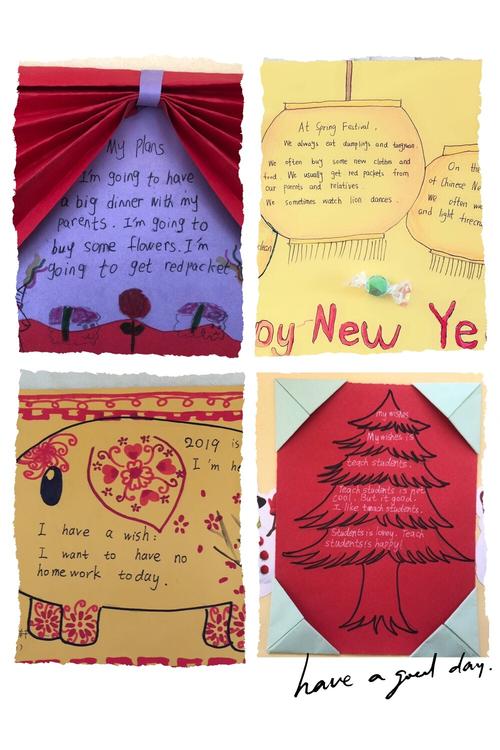 My Plans
I'm going to have
a big dinner with my
parents. I'm going to
buy some flowers. I'm
going to get redpacket
At Spring Festival.
We always eat dumplings and tangyuan.
We often buy some new clothes and
food. We usually get red packets from
our parents and relatives.
We sometimes watch lion dances.
On th
of Chinese Ne
We often we
and light firecra
clean
py New Ye
2019 is
I'm he
I have a wish:
I want to have no
homework today.
my wishes
My wishes is
teach students.
Teach students is not
cool. But it good.
I like teach students.
Students is loney. Teach
students is happy!
have a good day.